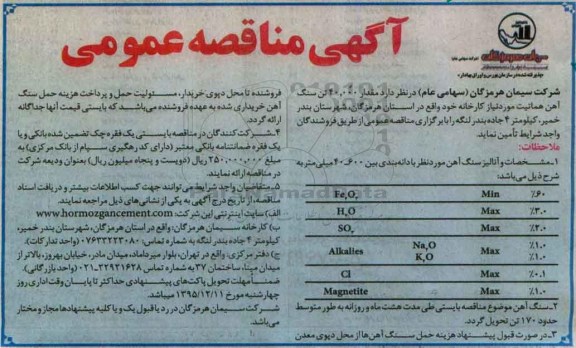 آگهی مناقصه عمومی
سیمان هرمزگان
شرکت سیمان هرمزگان (سهامی عام) در نظر دارد مقدار ۴۰,۰۰۰ تن سنگ
آهن هماتیت مورد نیاز کارخانه خود واقع در استان هرمزگان، شهرستان بندر
خمیر، کیلومتر ۴ جاده بندر لنگه را با برگزاری مناقصه عمومی از طریق فروشندگان
واجد شرایط تأمین نماید.
ملاحظات:
۱ـ مشخصات و آنالیز سنگ آهن مورد نظر با دانه‌بندی بین ۶۰۰ـ۴۰ میلی‌متر به
شرح ذیل می‌باشد:
Fe₂O₃ Min ٪۶۰
H₂O Max ٪۳.۰
SO₃ Max ٪۲.۰
Alkalies Na₂O Max ٪۱.۰
K₂O ٪۱.۰
Cl Max ٪۰.۱
Magnetite Max ٪۱.۰
۲ـ سنگ آهن موضوع مناقصه بایستی طی مدت هشت ماه و روزانه به طور متوسط
حدود ۱۷۰ تن تحویل گردد.
۳ـ در صورت قبول پیشنهاد هزینه حمل سنگ آهن‌ها از محل دپوی معدن
فروشنده تا محل دپوی خریدار، مسئولیت حمل و پرداخت هزینه حمل سنگ
آهن خریداری شده به عهده فروشنده می‌باشد که بایستی قیمت آنها جداگانه
ارائه گردد.
۴ـ شرکت کنندگان در مناقصه بایستی یک فقره چک تضمین شده بانکی و یا
یک فقره ضمانتنامه بانکی معتبر (دارای کد رهگیری سپام از بانک مرکزی) به
مبلغ ۲۵۰,۰۰۰,۰۰۰ ریال (دویست و پنجاه میلیون ریال) بعنوان ودیعه شرکت
در مناقصه ارائه نمایند.
۵ـ متقاضیان واجد شرایط می‌توانند جهت کسب اطلاعات بیشتر و دریافت اسناد
مناقصه، از تاریخ درج آگهی به یکی از نشانی‌های ذیل مراجعه نمایند.
الف) سایت اینترنتی این شرکت: www.hormozgancement.com
ب) کارخانه سیمان هرمزگان: واقع در استان هرمزگان، شهرستان بندر خمیر،
کیلومتر ۴ جاده بندر لنگه به شماره تماس: ۰۷۶۳۳۲۲۳۰۸۰ (واحد تدارکات).
ج) دفتر مرکزی: واقع در تهران، بلوار میرداماد، میدان مادر، خیابان بهروز، بالاتر از
میدان مینا، ساختمان ۳۷ به شماره تماس ۲۲۹۲۱۶۲۸ـ۰۲۱ (واحد بازرگانی).
ضمناً مهلت تحویل پاکت‌های پیشنهادی حداکثر تا پایان وقت اداری روز
چهارشنبه مورخ ۱۳۹۵/۱۲/۱۱ میباشد.
شرکت سیمان هرمزگان در رد یا قبول یک و یا کلیه پیشنهادها مجاز و مختار
می‌باشد.